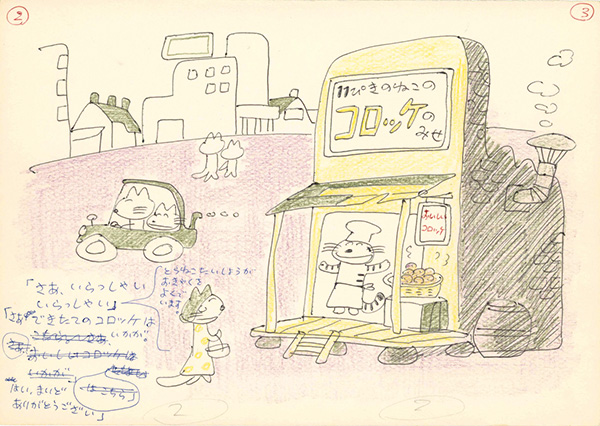 2
3
11ぴきのねこの
コロッケの
みせ
おいしい
コロッケ
とらねこたいしょうが
おきゃくを
よんで
います。
「さぁ、いらっしゃい
いらっしゃい」
「さぁ できたてのコロッケは
いかが。
おいしいコロッケは
いかが
はこちら」
はい、まいど
ありがとうござい」
2
2